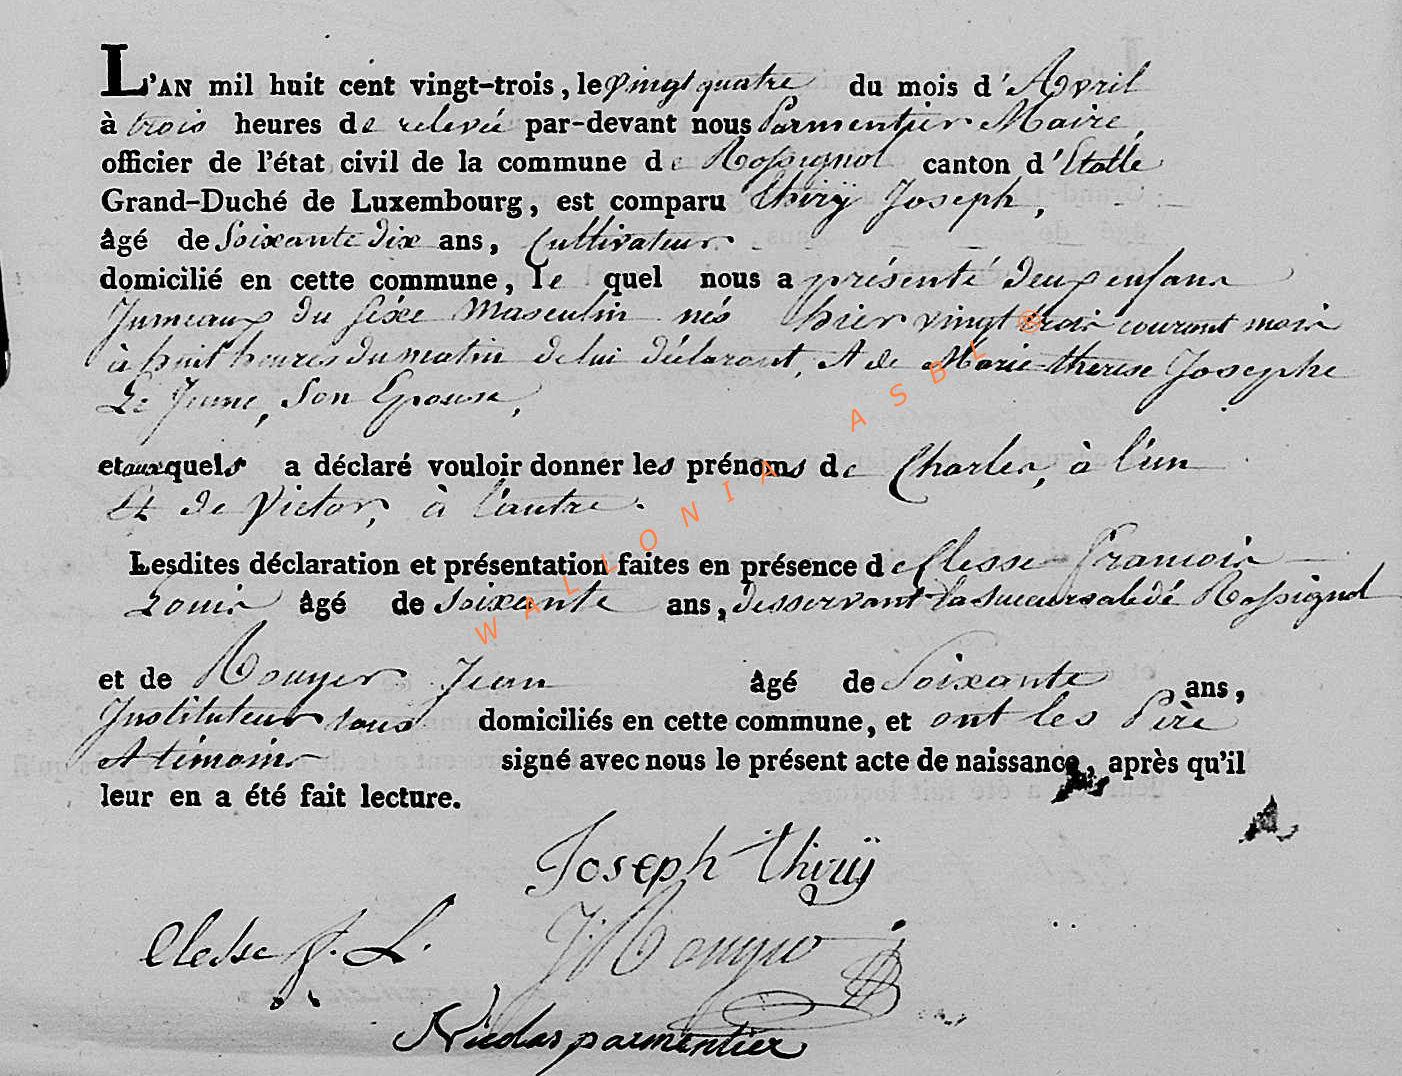 L'AN mil huit cent vingt-trois, le vingt quatre du mois d'Avril
à trois heures de relevée par-devant nous Parmentier Maire,
officier de l'état civil de la commune de Rossignol canton d'Etalle
Grand-Duché de Luxembourg, est comparu thirÿ Joseph,
âgé de Soixante dix ans, Cultivateur
domicilié en cette commune, le quel nous a présenté deux enfans
Jumeaux du séxe Masculin nés hier vingt trois courant mois
à huit heures du matin de lui déclarant, et de Marie therese Josephe
Le Jeune, Son Epouse,
et auxquels a déclaré vouloir donner les prénoms de Charles, à l'un
Et de Victor, à l'autre.
Lesdites déclaration et présentation faites en présence de Clesse francois
Louis âgé de soixante ans, desservant la succursale dé Rossignol
et de Rouyer Jean âgé de Soixante ans,
Instituteur tous domiciliés en cette commune, et ont les Père
et témoins signé avec nous le présent acte de naissance, après qu'il
leur en a été fait lecture.
Joseph thirÿ
Clesse f. L. J: Rouyer
Nicolas parmentier
WALLONIA ASBL ®